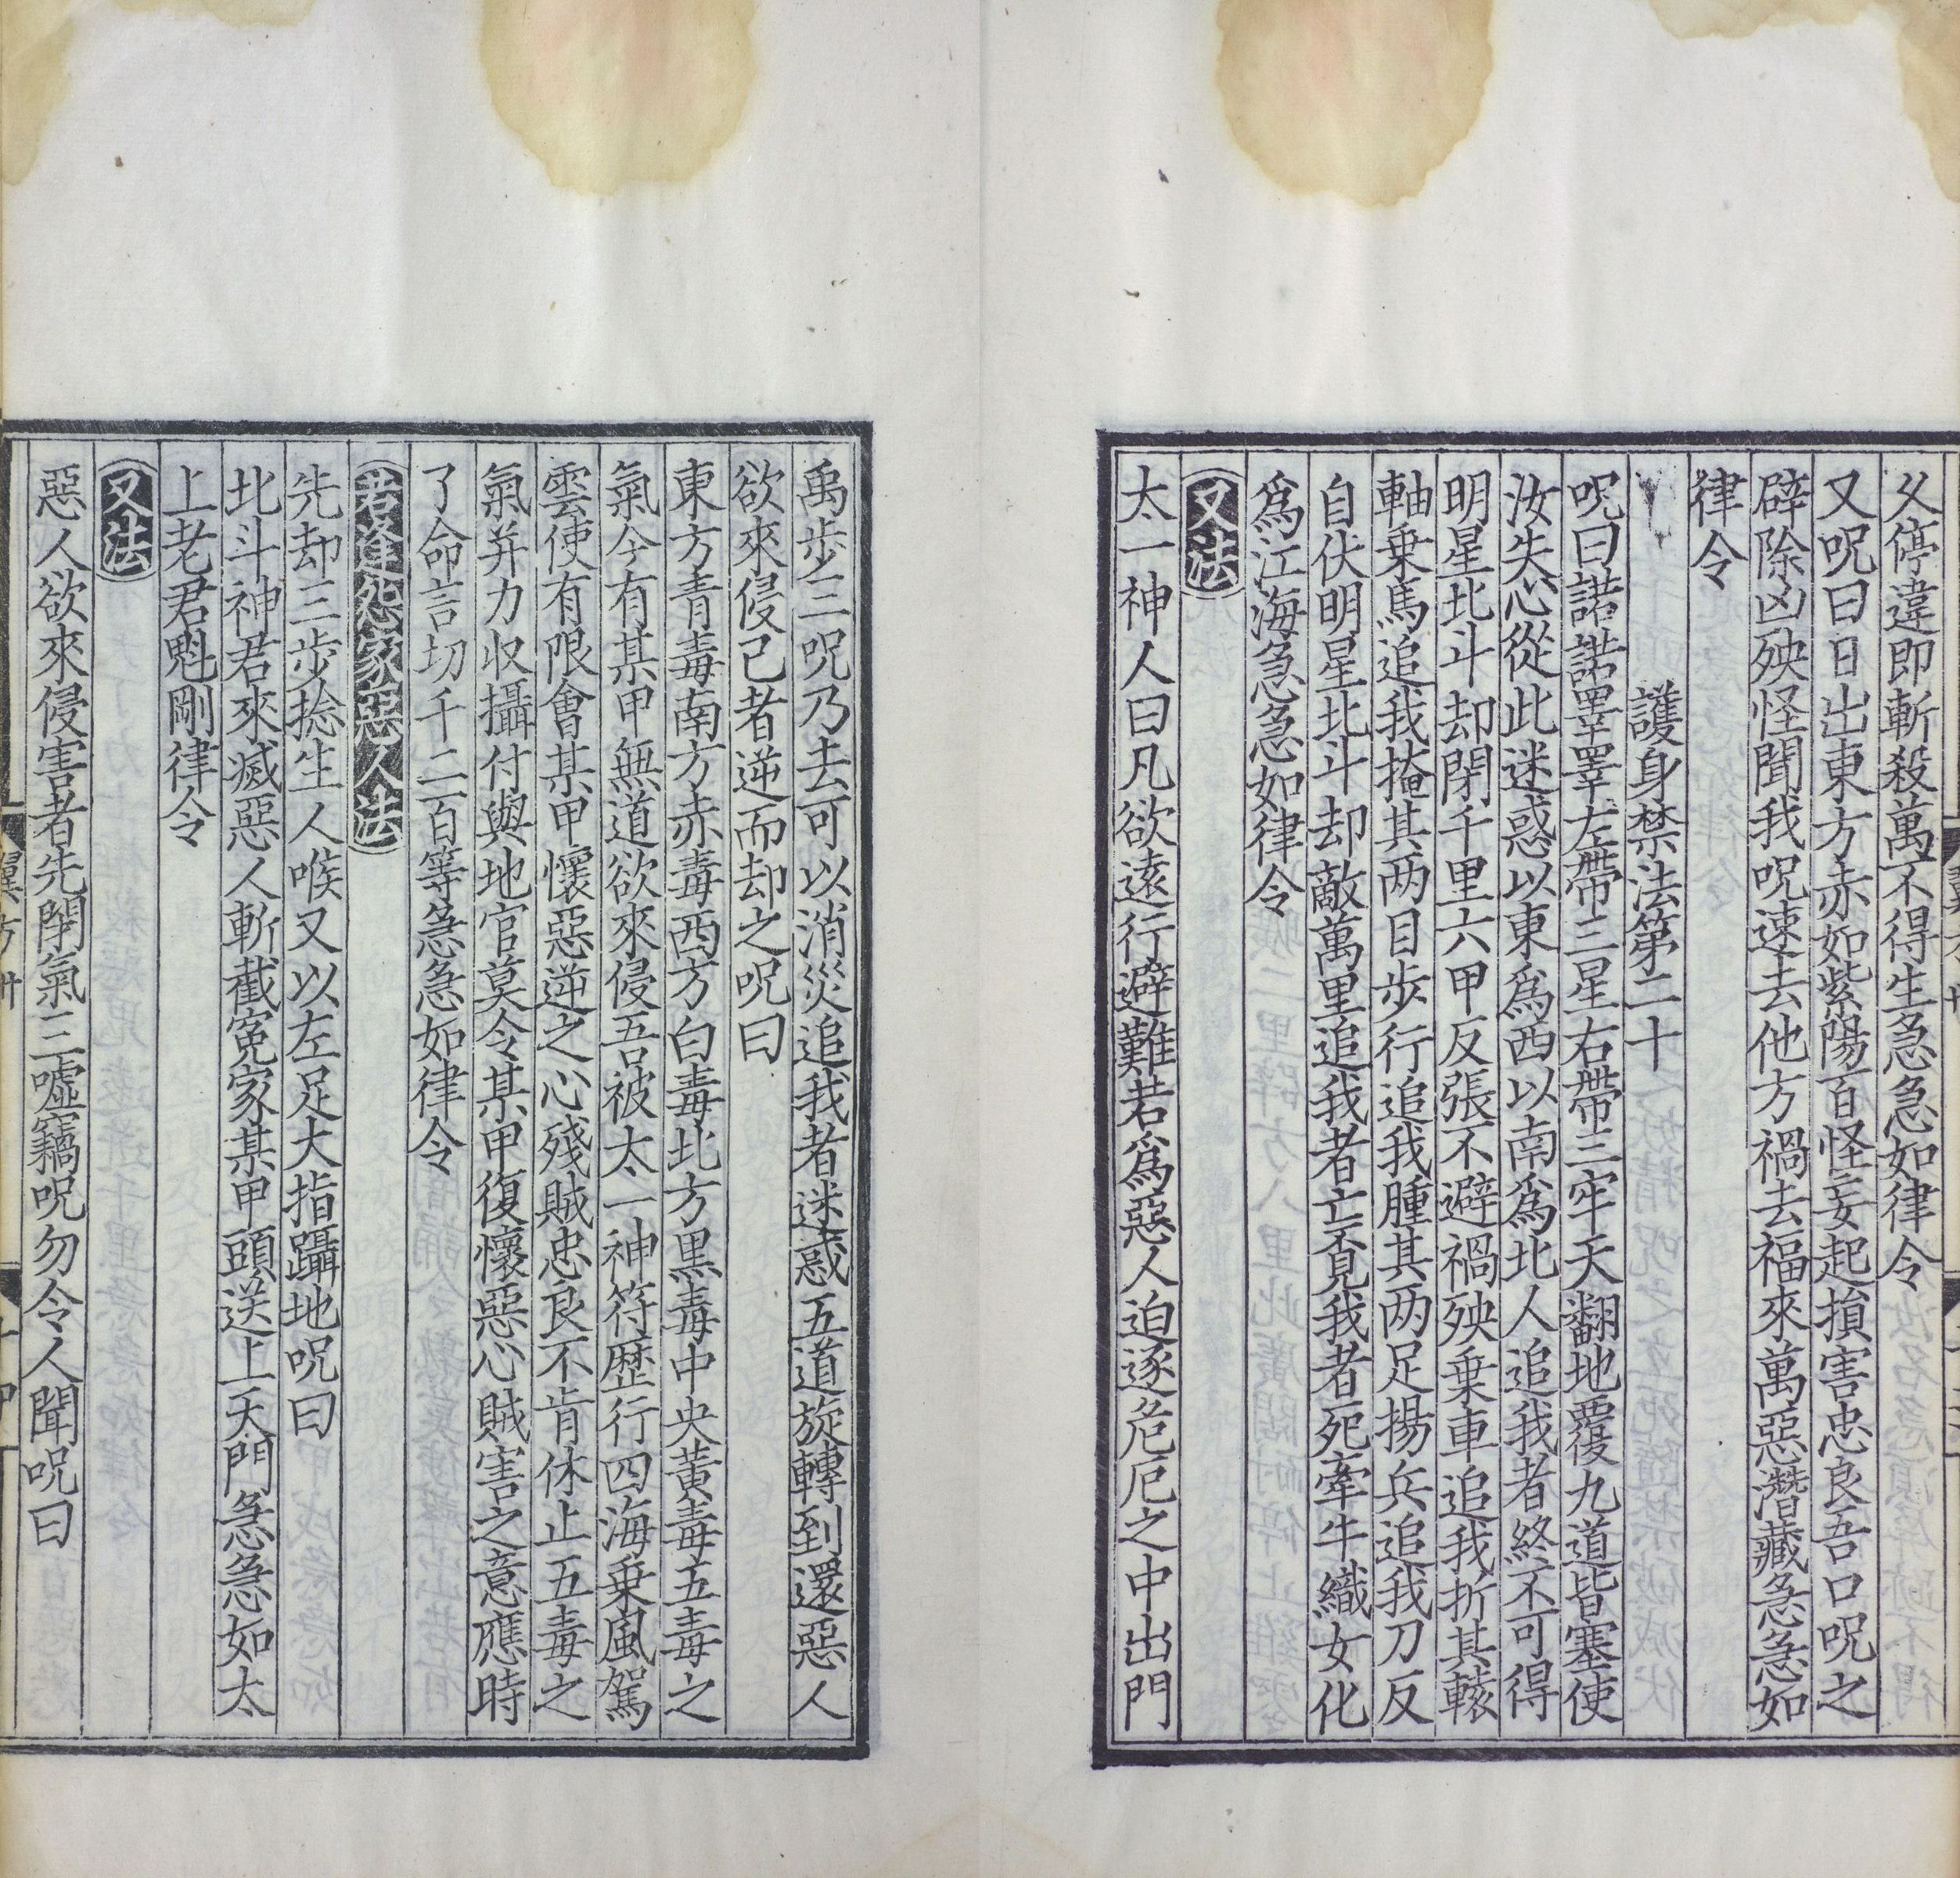 乂停違即斬殺萬不得生急急如律令
又呪曰日出東方赤如紫陽百怪妄起損害忠良吾口呪之
辟除凶殃怪聞我呪速去他方禍去福來萬惡潛藏急急如
律令
護身禁法第二十
呪曰諾諾睪睪左帶三星右帶三牢天翻地覆九道皆塞使
汝失心從此迷惑以東爲西以南爲北人追我者終不可得
明星北斗却閉千里六甲反張不避禍殃乗車追我折其轅
軸乗馬追我掩其两目步行追我腫其两足揚兵追我刀反
自伏明星北斗却敵萬里追我者亡覔我者死牽牛織女化
爲江海急急如律令
又法
太一神人曰凡欲遠行避難若爲惡人迫逐危厄之中出門
禹步三呪乃去可以消災追我者迷惑五道旋轉到還惡人
欲來侵己者逆而却之呪曰
東方青毒南方赤毒西方白毒北方黑毒中央黃毒五毒之
氣今有某甲無道欲來侵吾被太一神符歷行四海乗風駕
雲使有限會某甲懷惡逆之心殘賊忠良不肯休止五毒之
氣并力收攝付與地官莫令某甲復懷惡心賊害之意應時
了命言切千二百等急急如律令
若逢怨家惡人法
先却三步捻生人喉又以左足大指躡地呪曰
北斗神君來滅惡人斬截寃家某甲頭送上天門急急如太
上老君魁剛律令
又法
惡人欲來侵害者先閉氣三噓竊呪勿令人聞呪曰